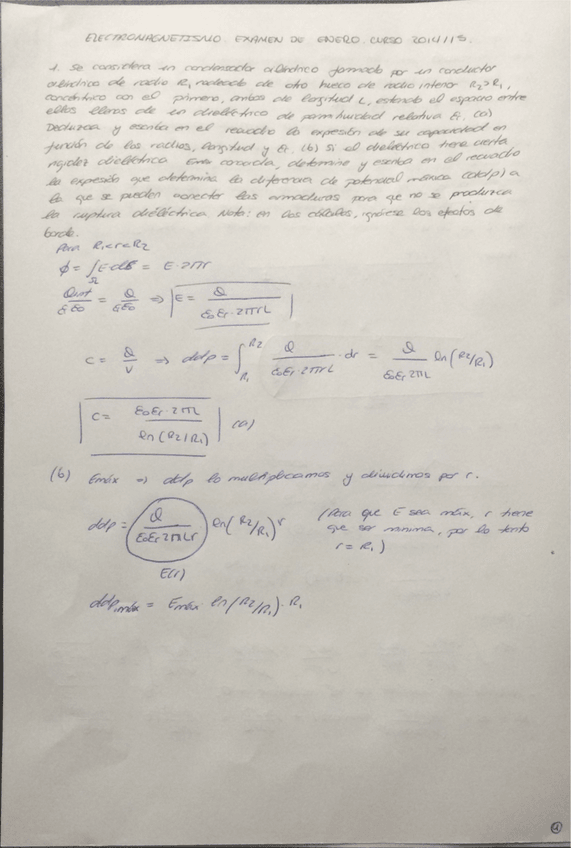 ELECTROMAGNETISMO. EXAMEN DE ENERO. CURSO 2014/15.
1. Se considera un condensador cilíndrico formado por un conductor
cilíndrico de radio R₁ rodeado de otro hueco de radio interior R₂>R₁,
concéntrico con el primero, ambos de longitud L, estando el espacio entre
ellos lleno de un dieléctrico de permitividad relativa εr. (a)
Deduzca y escriba en el recuadro la expresión de su capacidad en
función de los radios, longitud y εr. (b) Si el dieléctrico tiene cierta
rigidez dieléctrica Emáx conocida, determine y escriba en el recuadro
la expresión que determina la diferencia de potencial máxima (ddp) a
la que se pueden conectar las armaduras para que no se produzca
la ruptura dieléctrica. Nota: en los cálculos, ignórese los efectos de
borde.
Para R₁<r<R₂
ϕ = ∫ E·ds = E·2πr
Qint/εε0 = Q/εε0 => E = Q/ε0εr·2πrL
C = Q/V => ddp = ∫R₁R₂ Q/ε0εr·2πrL · dr = Q/ε0εr2πL ln(R2/R1)
C = ε0εr·2πL/ln(R2/R1) (a)
(b) Emáx => ddp lo multiplicamos y dividimos por r.
ddp = Q/ε0εr2πLr ln(R2/R1) r (Para que E sea máx, r tiene
que ser mínima, por lo tanto
r = R₁)
E(r)
ddpmáx = Emáx ln(R2/R1)·R₁